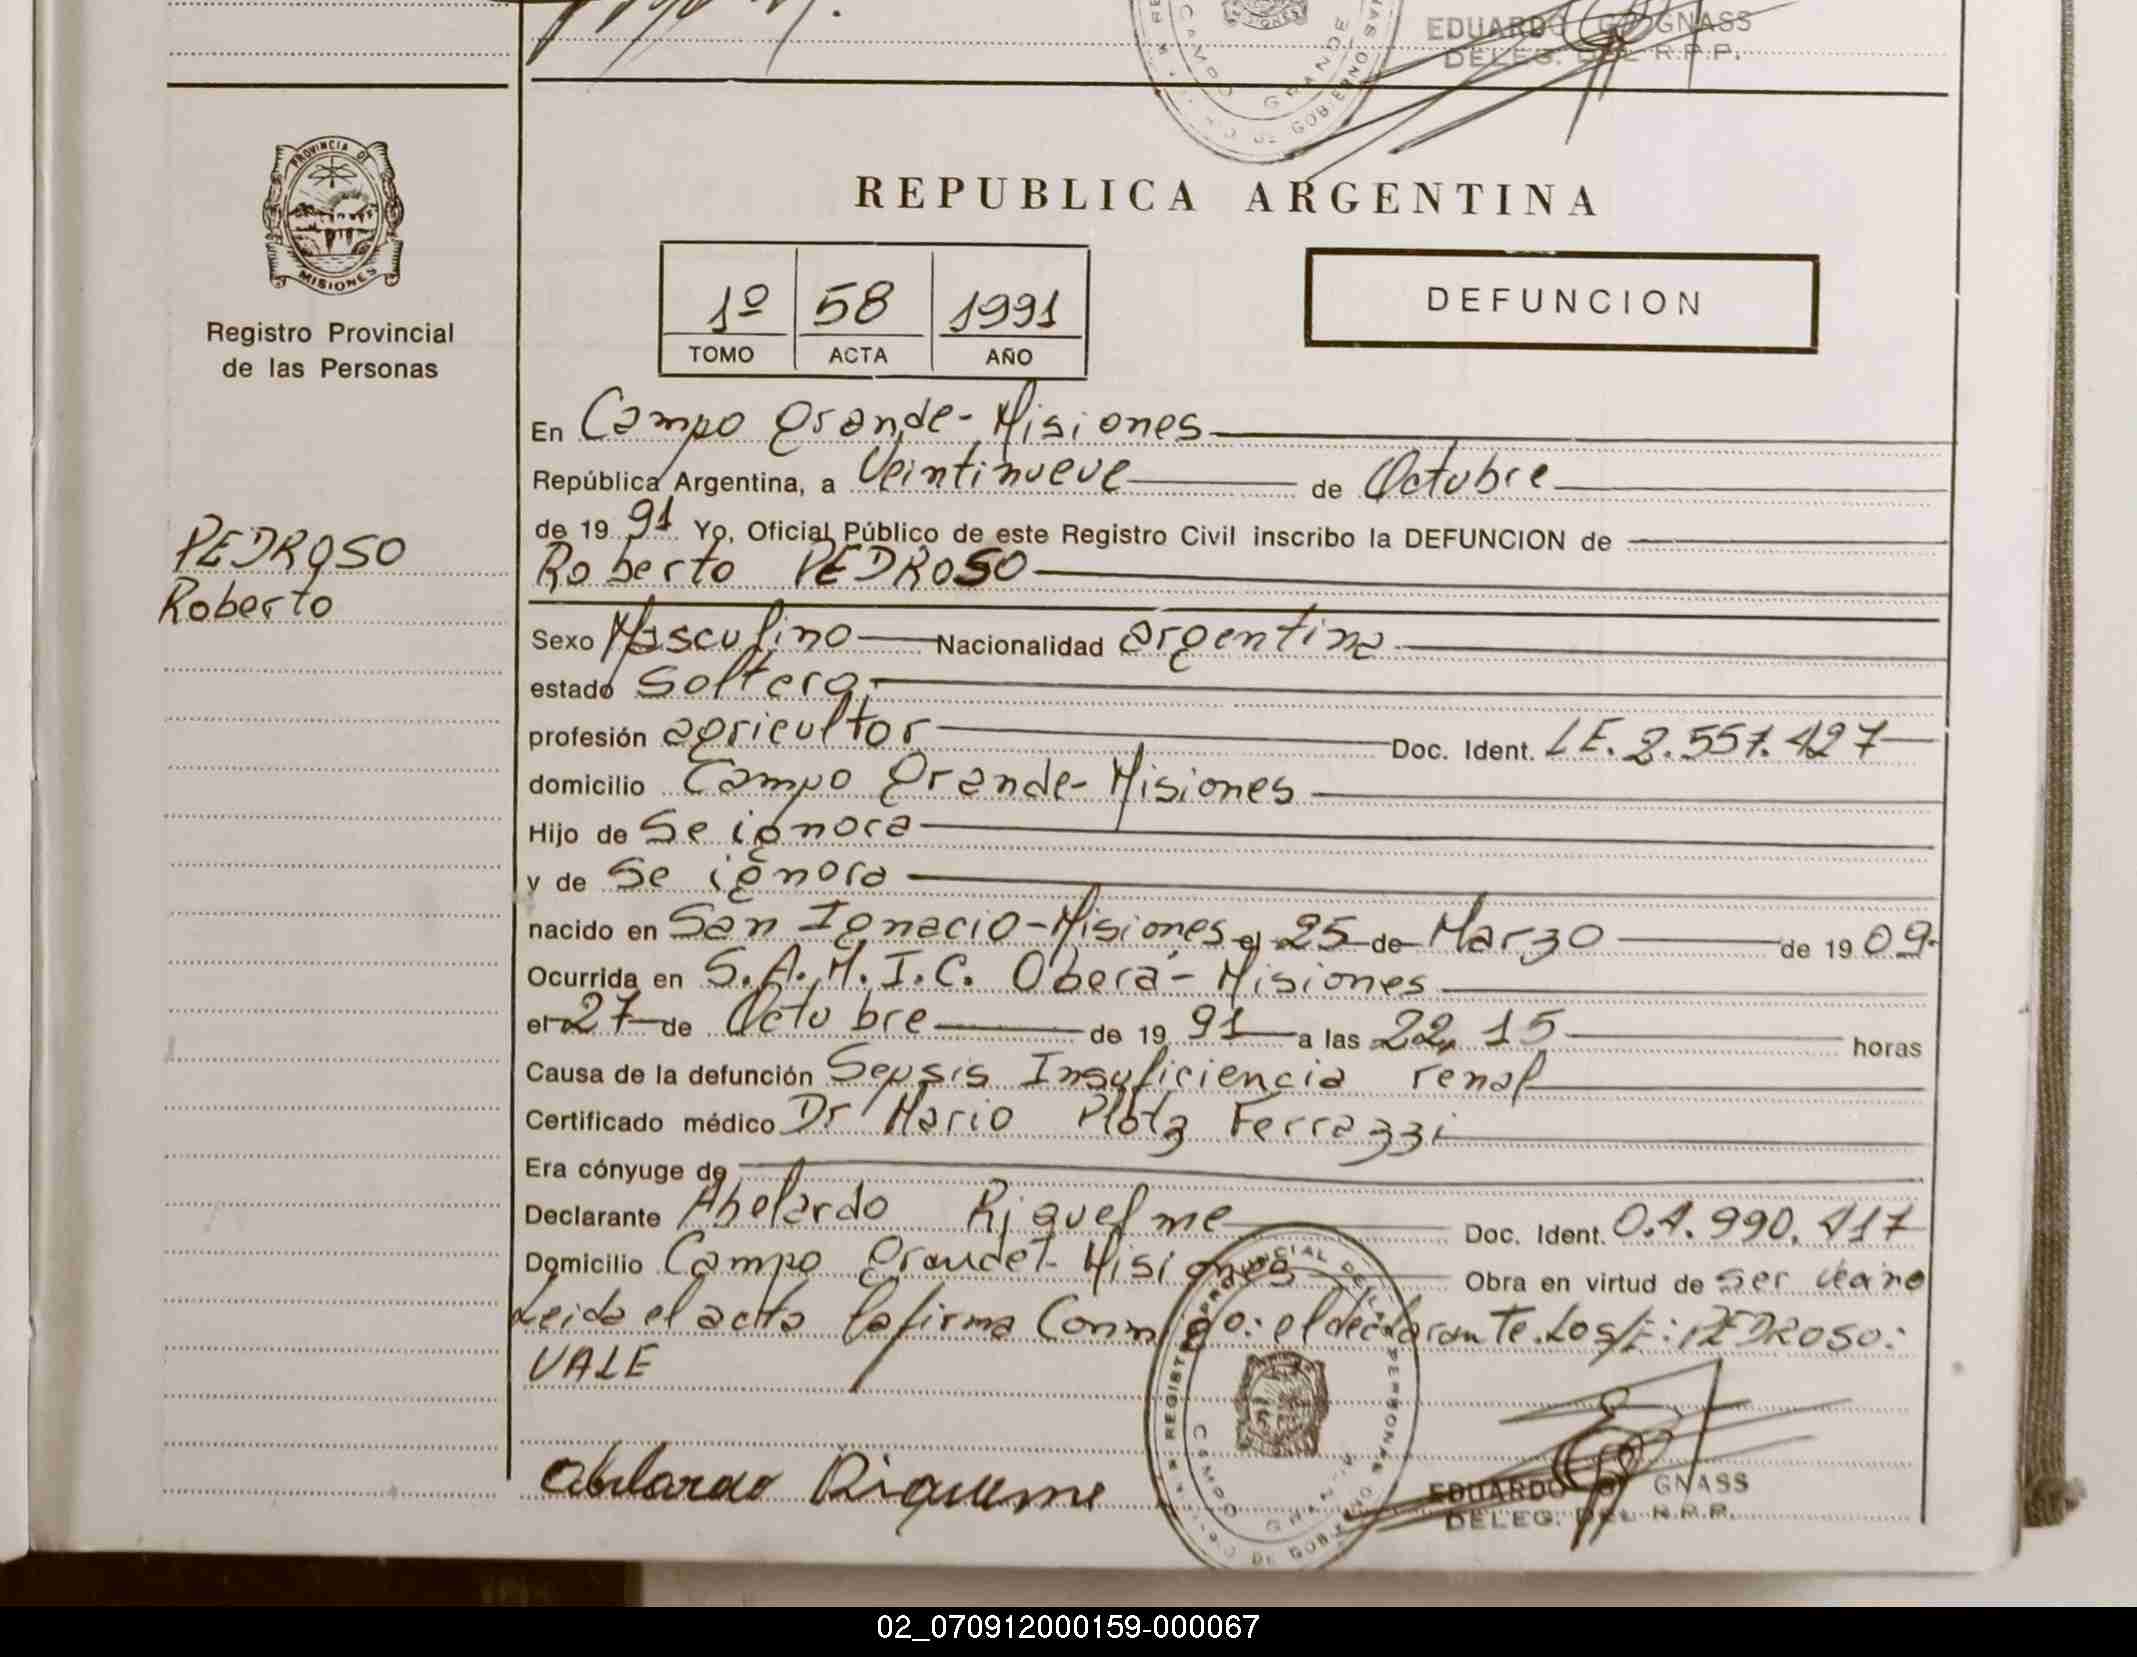 EDUARDO GNASS
DELEG. DEL R.P.P.
CAMPO GRANDE
DE GOBIERNO
PROVINCIA DE
MISIONES
Registro Provincial
de las Personas
REPUBLICA ARGENTINA
1º 58 1991
TOMO ACTA AÑO
DEFUNCION
En Campo Grande - Misiones
República Argentina, a Veintinueve de Octubre
de 19 91 Yo, Oficial Público de este Registro Civil inscribo la DEFUNCION de
Roberto PEDROSO
PEDROSO
Roberto
Sexo Masculino Nacionalidad argentina
estado Soltero
profesión agricultor Doc. Ident. LE. 2.557.427
domicilio Campo Grande - Misiones
Hijo de Se ignora
y de Se ignora
nacido en San Ignacio - Misiones el 25 de Marzo de 19 09.
Ocurrida en S.A.M.I.C. Oberá - Misiones
el 27 de Octubre de 19 91 a las 22,15 horas
Causa de la defunción Sepsis Insuficiencia renal
Certificado médico Dr Mario Plotz Ferrazzi
Era cónyuge de
Declarante Abelardo Riquelme Doc. Ident. 0.4.990.417
Domicilio Campo Grande - Misiones Obra en virtud de ser vecino
Leida el acta la firma Conmigo: el declarante. Los/E: PEDROSO:
VALE
Abelardo Riquelme
REGISTRO PROVINCIAL DE LAS PERSONAS
CAMPO GRANDE
DE GOBIERNO
EDUARDO GNASS
DELEG. DEL R.P.P.
02_070912000159-000067